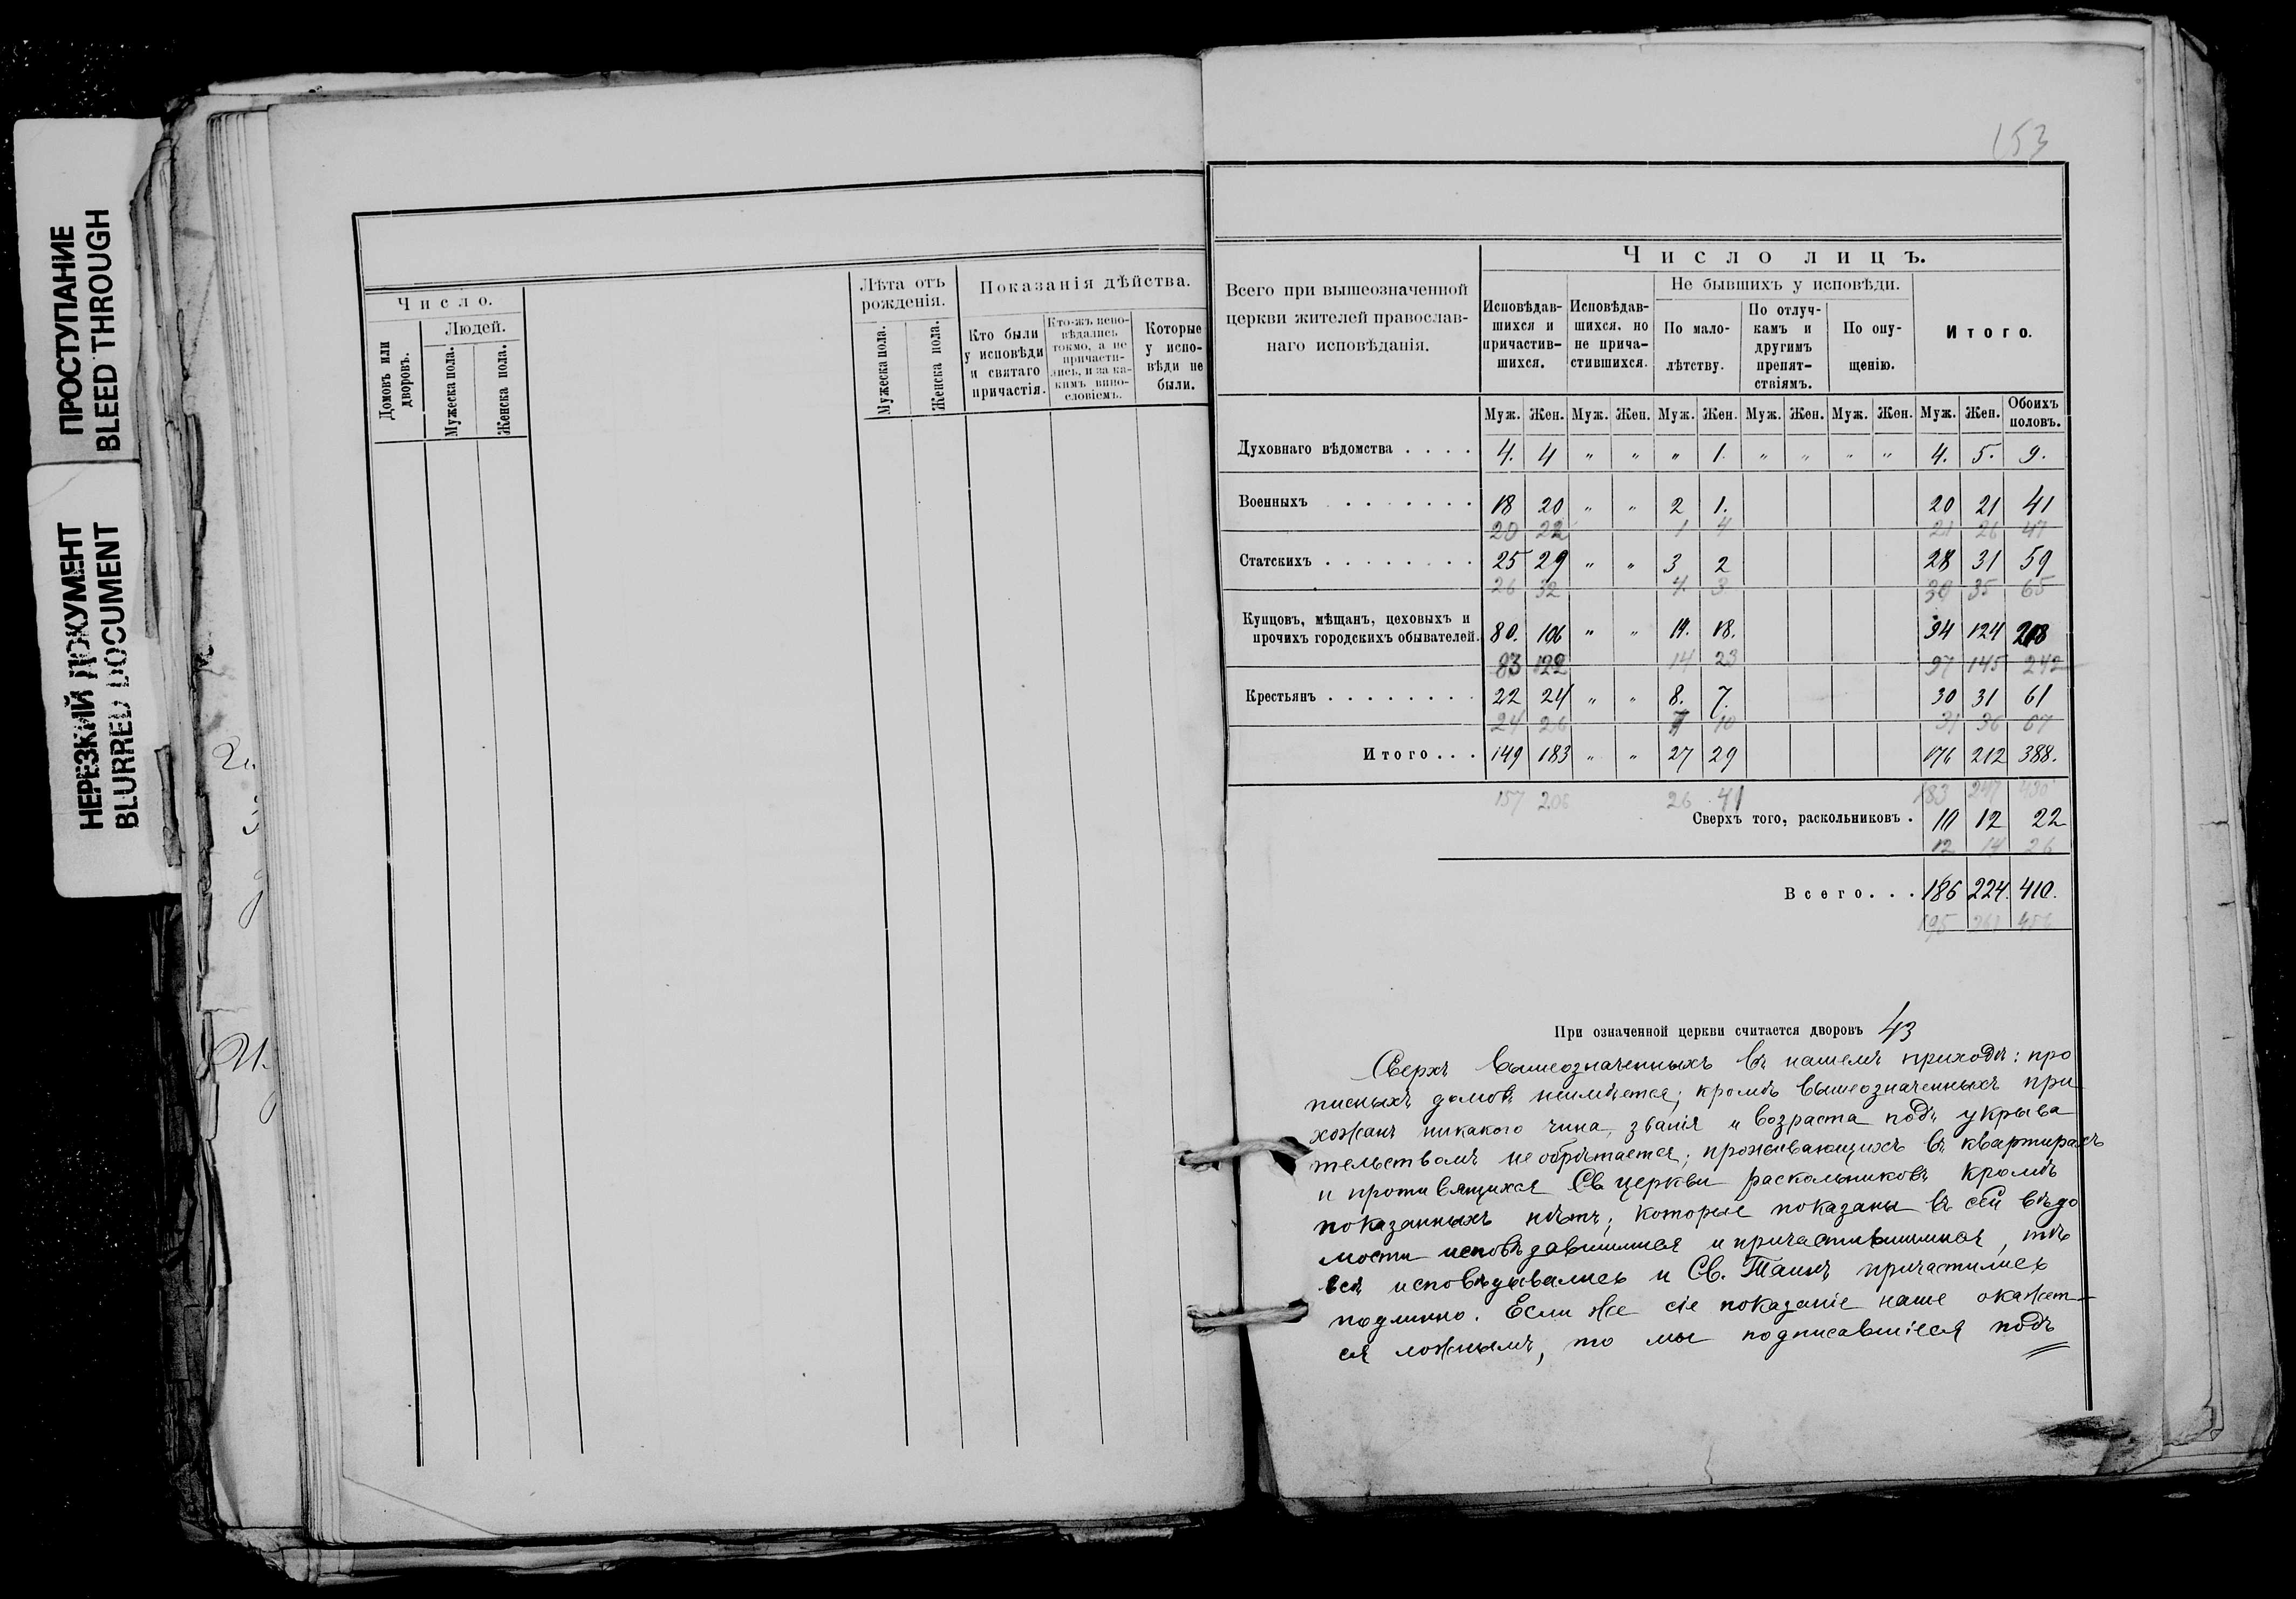 ПРОСТУПАНИЕ
BLEED THROUGH
НЕРЕЗКИЙ ДОКУМЕНТ
BLURRED DOCUMENT
Число.
Домовъ или дворовъ.
Людей.
Мужеска пола.
Женска пола.
Лѣта отъ рожденія.
Мужеска пола.
Женска пола.
Показанія дѣйства.
Кто были у исповѣди и святаго причастія.
Кто-жъ исповѣдались токмо, а не причастились, и за какимъ винословіемъ.
Которые у исповѣди не были.
153
Всего при вышеозначенной
церкви жителей православ-
наго исповѣданія.
Число лицъ.
Исповѣдав-
шихся и
причастив-
шихся.
Исповѣдав-
шихся, но
не прича-
стившихся.
Не бывшихъ у исповѣди.
По мало-
лѣтству.
По отлуч-
камъ и
другимъ
препят-
ствіямъ.
По опу-
щенію.
Итого.
Муж. Жен. Муж. Жен. Муж. Жен. Муж. Жен. Муж. Жен. Муж. Жен. Обоихъ половъ.
Духовнаго вѣдомства . . . . 4. 4 " " " 1. " " " " 4. 5. 9.
Военныхъ . . . . . . . 18 20 " " 2 1. 20 21 41
20 22 1 4 21 26 47
Статскихъ . . . . . . . . 25 29 " " 3 2 28 31 59
26 32 4. 3 30 35 65
Купцовъ, мѣщанъ, цеховыхъ и
прочихъ городскихъ обывателей. 80. 106 " " 14. 18. 94 124 218
83 122 14 23 97 145 242
Крестьянъ . . . . . . . . 22 24 " " 8. 7. 30 31 61
24 26 7 10 31 36 67
Итого . . . 149 183 " " 27 29 176 212 388.
157 206 26 41 183 247 430
Сверхъ того, раскольниковъ . 10 12 22
12 14 26
Всего. . . 186 224. 410.
195 261 456
При означенной церкви считается дворовъ 43
Сверхъ вышеозначенныхъ въ нашемъ приходѣ: про
писныхъ домовъ неимѣется; кромѣ вышеозначенныхъ при-
хожанъ никакого чина, званія и возраста подъ укрыва
тельствомъ не обрѣтается; проживающихъ въ квартирахъ
и противящихся Св. церкви раскольниковъ кромѣ
показанныхъ нѣтъ; которые показаны въ сей вѣдо
мости исповѣдавшимися и причастившимися, тѣ
всѣ исповѣдывались и Св. Таинъ причастились
подлинно. Если же сіе показаніе наше окажет-
ся ложнымъ, то мы подписавшіеся подъ